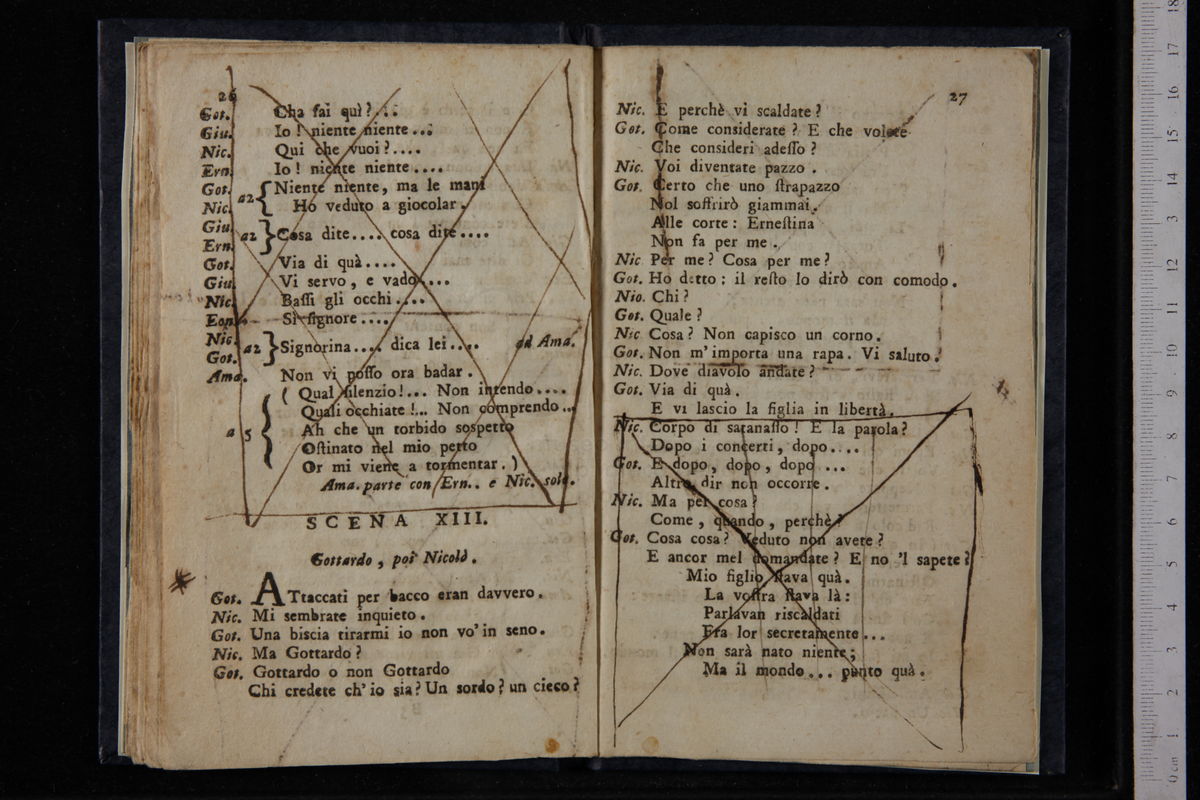 26
Got. Cha fai quì? ...
Giu. Io! niente niente...
Nic. Qui che vuoi?....
Ern. Io! niente niente....
Got. Nic. a2 { Niente niente, ma le mani
Ho veduto a giocolar.
Giu. Ern. a2 } Cosa dite.... cosa dite....
Got. Via di quà....
Giu. Vi servo, e vado....
Nic. Bassi gli occhi....
Si signore....
Nic. Got. a2 } Signorina.... dica lei.... ad Ama.
Ama. Non vi posso ora badar.
a 5 { ( Qual silenzio!... Non intendo....
Quali occhiate!... Non comprendo...
Ah che un torbido sospetto
Ostinato nel mio petto
Or mi viene a tormentar. )
Ama. parte con Ern.. e Nic. solo.
SCENA XIII.
Gottardo, poi Nicolò.
Got. ATtaccati per bacco eran davvero.
Nic. Mi sembrate inquieto.
Got. Una biscia tirarmi io non vo' in seno.
Nic. Ma Gottardo?
Got. Gottardo o non Gottardo
Chi credete ch' io sia? Un sordo? un cieco?
27
Nic. E perchè vi scaldate?
Got. Come considerate? E che volete
Che consideri adesso?
Nic. Voi diventate pazzo.
Got. Certo che uno strapazzo
Nol soffrirò giammai.
Alle corte: Ernestina
Non fa per me.
Nic Per me? Cosa per me?
Got. Ho detto: il resto lo dirò con comodo.
Nio. Chi?
Got. Quale?
Nic Cosa? Non capisco un corno.
Got. Non m' importa una rapa. Vi saluto.
Nic. Dove diavolo andate?
Got. Via di quà.
E vi lascio la figlia in libertà.
Nic. Corpo di satanasso! E la parola?
Dopo i concerti, dopo....
Got. E dopo, dopo, dopo ...
Altro dir non occorre.
Nic. Ma per cosa?
Come, quando, perchè?
Got. Cosa cosa? Veduto non avete?
E ancor mel domandate? E no 'l sapete?
Mio figlio stava quà.
La vostra stava là:
Parlavan riscaldati
Fra lor secretamente...
Non sarà nato niente;
Ma il mondo... punto quà.